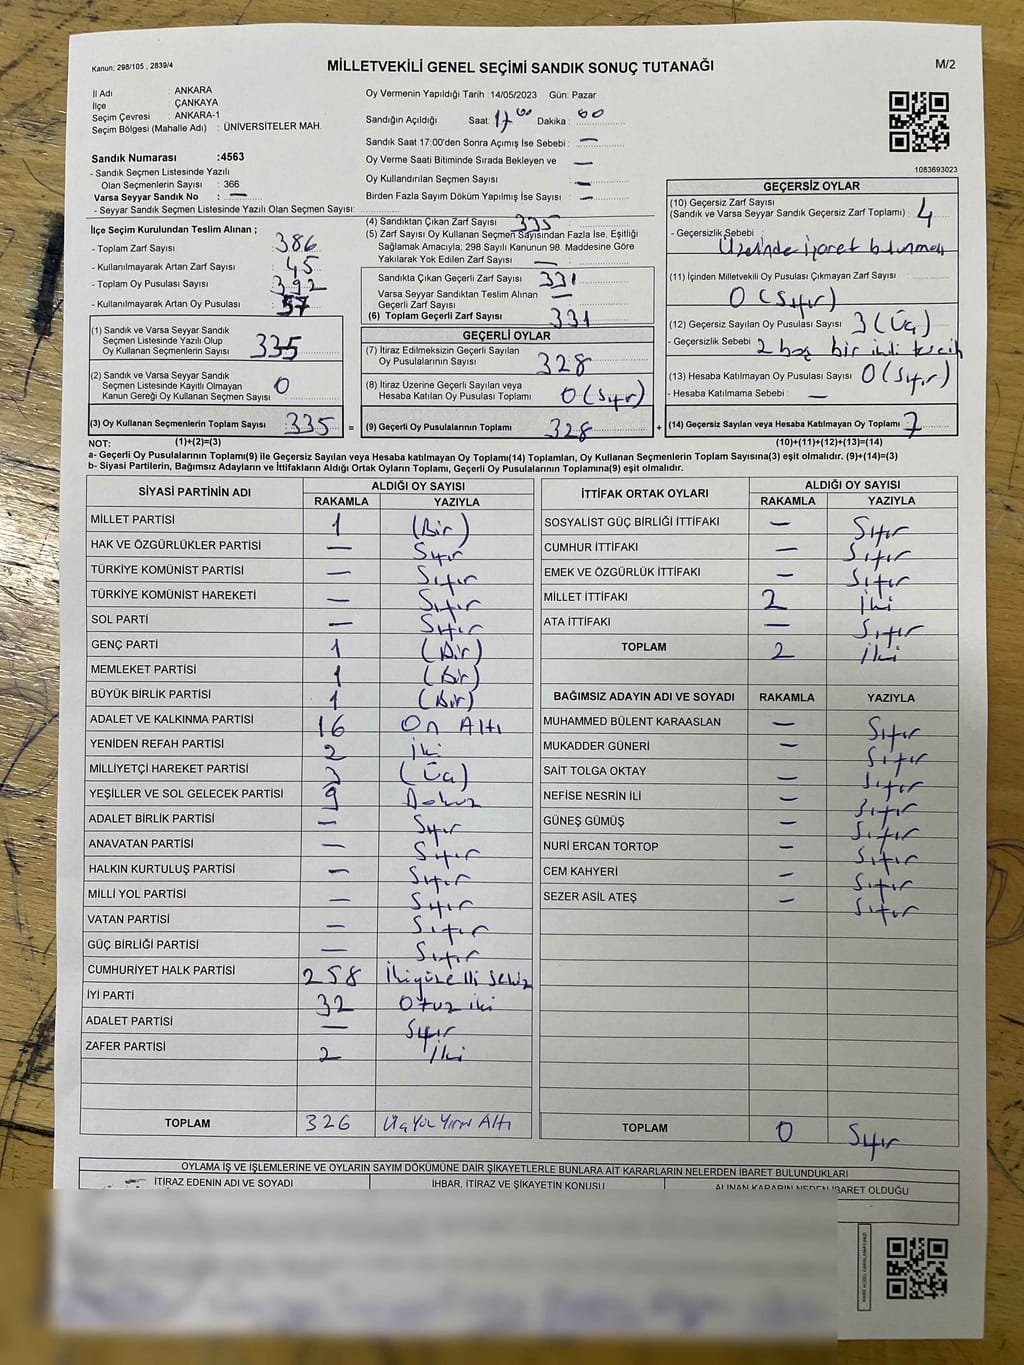 Kanun; 298/105 , 2839/4
MİLLETVEKİLİ GENEL SEÇİMİ SANDIK SONUÇ TUTANAĞI
M/2
İl Adı : ANKARA
İlçe : ÇANKAYA
Seçim Çevresi : ANKARA-1
Seçim Bölgesi (Mahalle Adı) : ÜNİVERSİTELER MAH.
Sandık Numarası :4563
- Sandık Seçmen Listesinde Yazılı
Olan Seçmenlerin Sayısı : 366
Varsa Seyyar Sandık No : —
- Seyyar Sandık Seçmen Listesinde Yazılı Olan Seçmen Sayısı:
Oy Vermenin Yapıldığı Tarih :14/05/2023 Gün: Pazar
Sandığın Açıldığı Saat: 17 00 Dakika : 00
Sandık Saat 17:00'den Sonra Açımış İse Sebebi : —
Oy Verme Saati Bitiminde Sırada Bekleyen ve —
Oy Kullandırılan Seçmen Sayısı : —
Birden Fazla Sayım Döküm Yapılmış İse Sayısı : —
1083693023
İlçe Seçim Kurulundan Teslim Alınan ;
- Toplam Zarf Sayısı : 386
- Kullanılmayarak Artan Zarf Sayısı : 45
- Toplam Oy Pusulası Sayısı : 392
- Kullanılmayarak Artan Oy Pusulası : 57
(1) Sandık ve Varsa Seyyar Sandık
Seçmen Listesinde Yazılı Olup
Oy Kullanan Seçmenlerin Sayısı : 335
(2) Sandık ve Varsa Seyyar Sandık
Seçmen Listesinde Kayıtlı Olmayan
Kanun Gereği Oy Kullanan Seçmen Sayısı : 0
(3) Oy Kullanan Seçmenlerin Toplam Sayısı : 335 =
(4) Sandıktan Çıkan Zarf Sayısı : 335
(5) Zarf Sayısı Oy Kullanan Seçmen Sayısından Fazla İse, Eşitliği
Sağlamak Amacıyla; 298 Sayılı Kanunun 98. Maddesine Göre
Yakılarak Yok Edilen Zarf Sayısı : —
Sandıkta Çıkan Geçerli Zarf Sayısı : 331
Varsa Seyyar Sandıktan Teslim Alınan
Geçerli Zarf Sayısı : —
(6) Toplam Geçerli Zarf Sayısı : 331
GEÇERLİ OYLAR
(7) İtiraz Edilmeksizin Geçerli Sayılan
Oy Pusulalarının Sayısı : 328
(8) İtiraz Üzerine Geçerli Sayılan veya
Hesaba Katılan Oy Pusulası Toplamı : 0 (Sıfır)
(9) Geçerli Oy Pusulalarının Toplamı : 328 +
GEÇERSİZ OYLAR
(10) Geçersiz Zarf Sayısı
(Sandık ve Varsa Seyyar Sandık Geçersiz Zarf Toplamı) : 4
- Geçersizlik Sebebi :
Üzerinde işaret bulunması
(11) İçinden Milletvekili Oy Pusulası Çıkmayan Zarf Sayısı :
0 (Sıfır)
(12) Geçersiz Sayılan Oy Pusulası Sayısı : 3 (Üç)
- Geçersizlik Sebebi : 2 boş bir ikili tercih
(13) Hesaba Katılmayan Oy Pusulası Sayısı : 0 (Sıfır)
- Hesaba Katılmama Sebebi : —
(14) Geçersiz Sayılan veya Hesaba Katılmayan Oy Toplamı : 7
NOT: (1)+(2)=(3) (10)+(11)+(12)+(13)=(14)
a- Geçerli Oy Pusulalarının Toplamı(9) ile Geçersiz Sayılan veya Hesaba katılmayan Oy Toplamı(14) Toplamları, Oy Kullanan Seçmenlerin Toplam Sayısına(3) eşit olmalıdır. (9)+(14)=(3)
b- Siyasi Partilerin, Bağımsız Adayların ve İttifakların Aldığı Ortak Oyların Toplamı, Geçerli Oy Pusulalarının Toplamına(9) eşit olmalıdır.
SİYASİ PARTİNİN ADI ALDIĞI OY SAYISI
RAKAMLA YAZIYLA
MİLLET PARTİSİ 1 (Bir)
HAK VE ÖZGÜRLÜKLER PARTİSİ — Sıfır
TÜRKİYE KOMÜNİST PARTİSİ — Sıfır
TÜRKİYE KOMÜNİST HAREKETİ — Sıfır
SOL PARTİ — Sıfır
GENÇ PARTİ 1 (Bir)
MEMLEKET PARTİSİ 1 (Bir)
BÜYÜK BİRLİK PARTİSİ 1 (Bir)
ADALET VE KALKINMA PARTİSİ 16 On Altı
YENİDEN REFAH PARTİSİ 2 İki
MİLLİYETÇİ HAREKET PARTİSİ 3 (Üç)
YEŞİLLER VE SOL GELECEK PARTİSİ 9 Dokuz
ADALET BİRLİK PARTİSİ — Sıfır
ANAVATAN PARTİSİ — Sıfır
HALKIN KURTULUŞ PARTİSİ — Sıfır
MİLLİ YOL PARTİSİ — Sıfır
VATAN PARTİSİ — Sıfır
GÜÇ BİRLİĞİ PARTİSİ — Sıfır
CUMHURİYET HALK PARTİSİ 258 İkiyüzelli sekiz
İYİ PARTİ 32 Otuz iki
ADALET PARTİSİ — Sıfır
ZAFER PARTİSİ 2 İki
TOPLAM 326 Üçyüz Yirmi Altı
İTTİFAK ORTAK OYLARI ALDIĞI OY SAYISI
RAKAMLA YAZIYLA
SOSYALİST GÜÇ BİRLİĞİ İTTİFAKI — Sıfır
CUMHUR İTTİFAKI — Sıfır
EMEK VE ÖZGÜRLÜK İTTİFAKI — Sıfır
MİLLET İTTİFAKI 2 İki
ATA İTTİFAKI — Sıfır
TOPLAM 2 İki
BAĞIMSIZ ADAYIN ADI VE SOYADI RAKAMLA YAZIYLA
MUHAMMED BÜLENT KARAASLAN — Sıfır
MUKADDER GÜNERİ — Sıfır
SAİT TOLGA OKTAY — Sıfır
NEFİSE NESRİN İLİ — Sıfır
GÜNEŞ GÜMÜŞ — Sıfır
NURİ ERCAN TORTOP — Sıfır
CEM KAHYERİ — Sıfır
SEZER ASİL ATEŞ — Sıfır
TOPLAM 0 Sıfır
OYLAMA İŞ VE İŞLEMLERİNE VE OYLARIN SAYIM DÖKÜMÜNE DAİR ŞİKAYETLERLE BUNLARA AİT KARARLARIN NELERDEN İBARET BULUNDUKLARI
İTİRAZ EDENİN ADI VE SOYADI İHBAR, İTİRAZ VE ŞİKAYETİN KONUSU ALINAN KARARIN NEDEN İBARET OLDUĞU